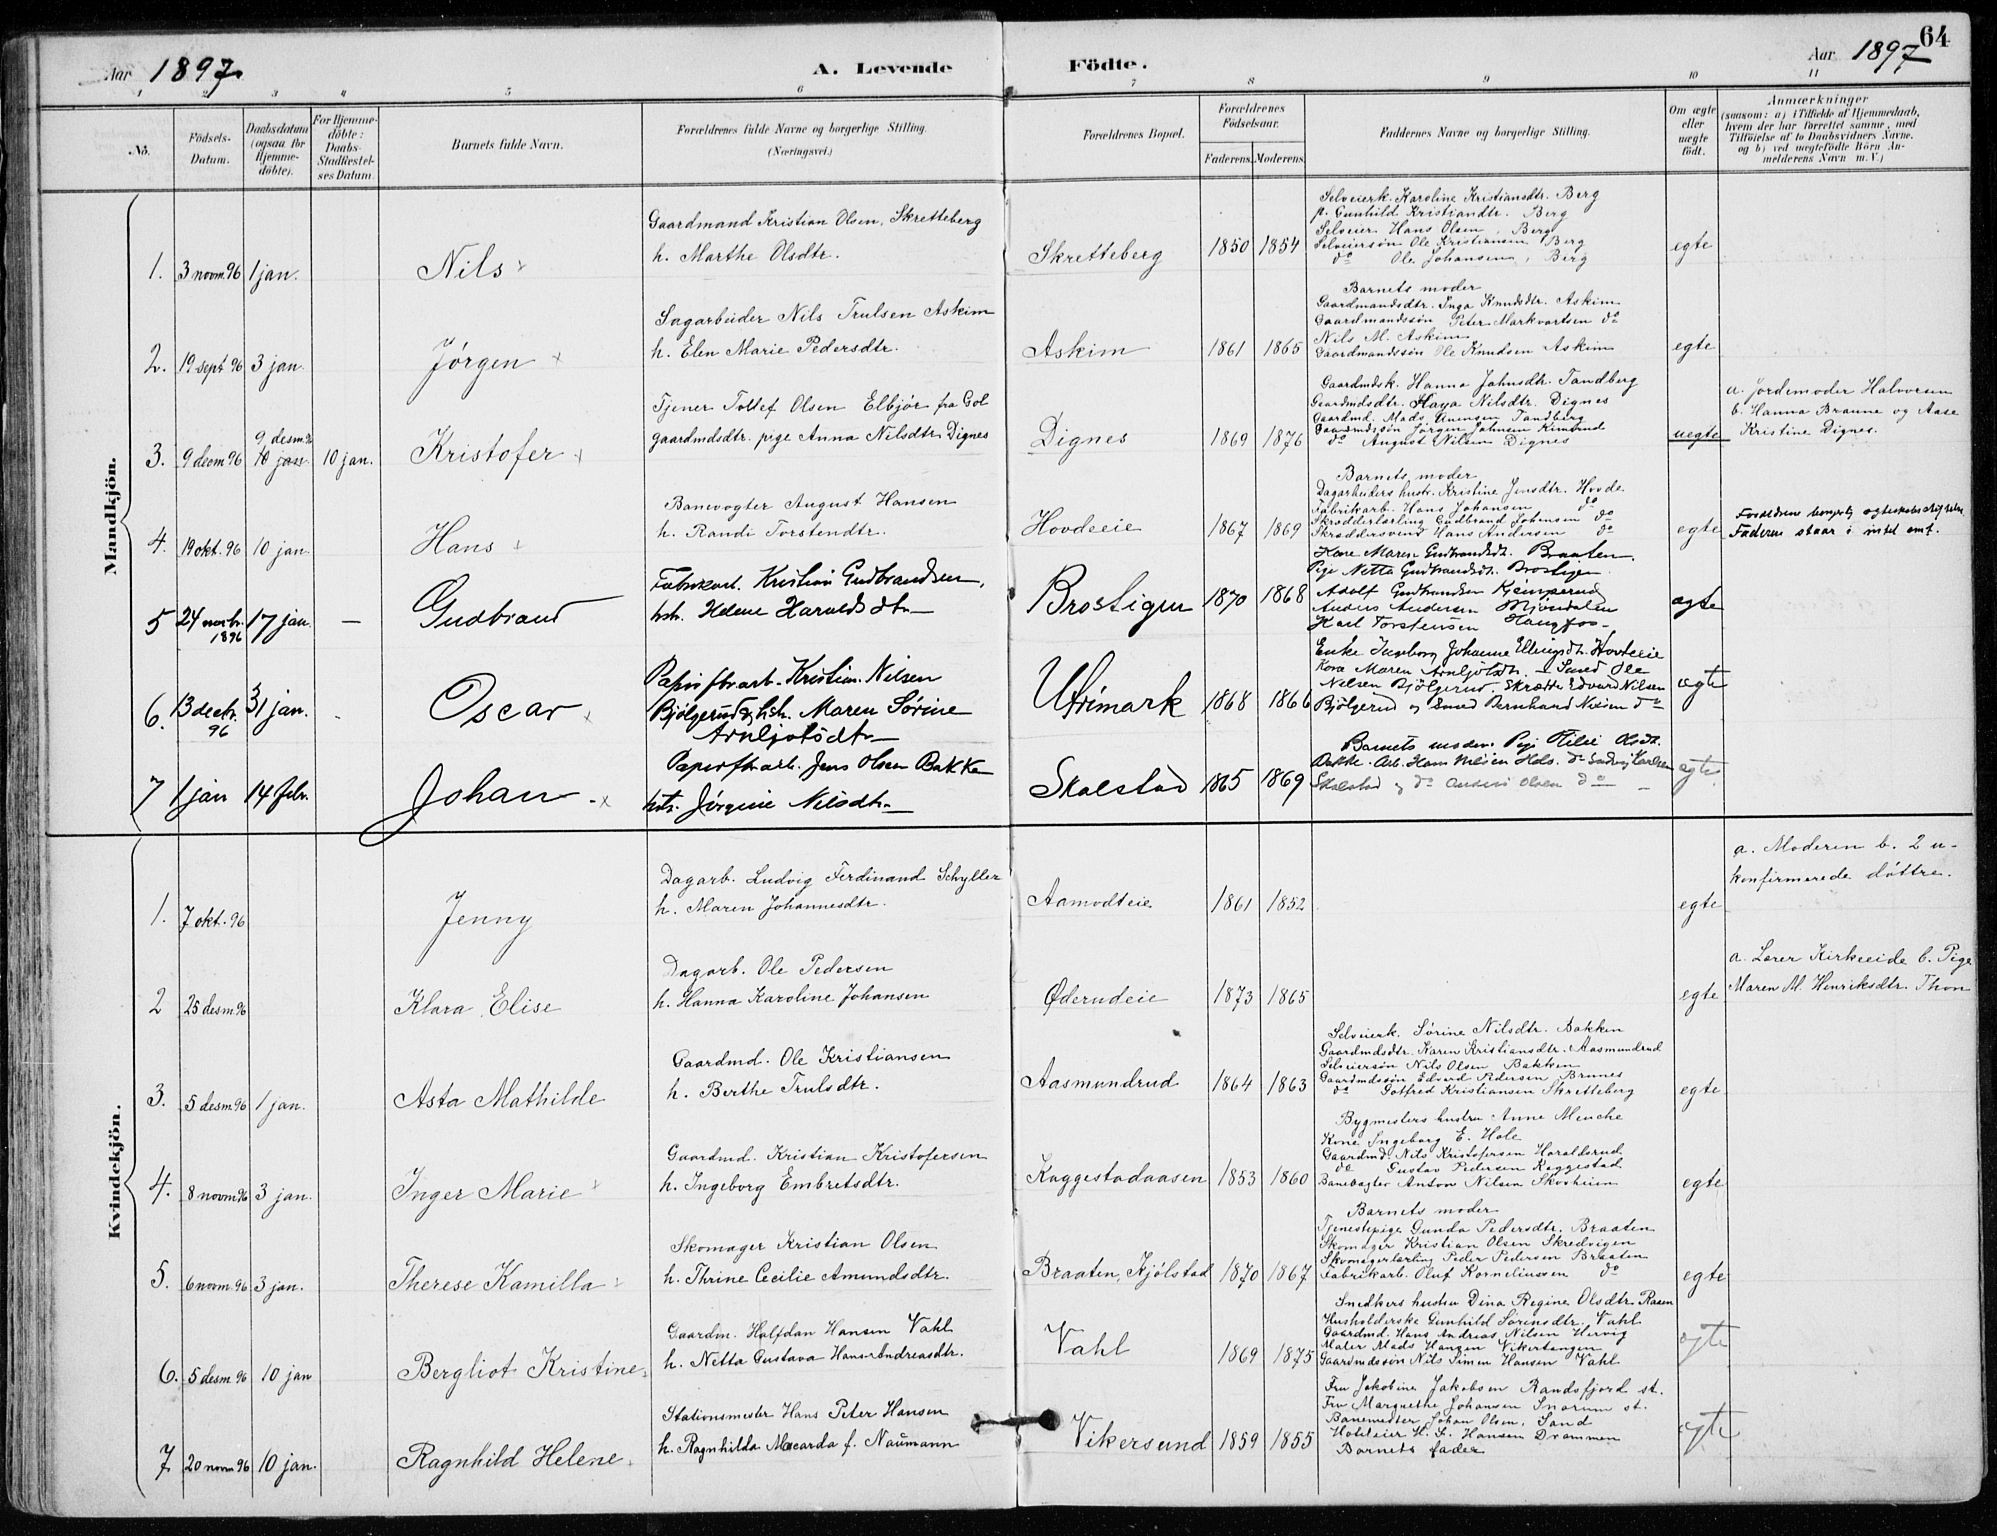 64
Aar 1897
A. Levende Födte.
Aar 1897
1 2 3 4 5 6 7 8 9 10 11
No.
Födsels-Datum.
Daabsdatum (ogsaa for Hjemme-döbte).
For Hjemme-döbte: Daabs-Stadfæstel-ses Datum
Barnets fulde Navn.
Forældrenes fulde Navne og borgerlige Stilling.
(Næringsvei.)
Forældrenes Bopæl.
Forældrenes Födselsaar.
Faderens. Moderens.
Faddernes Navne og borgerlige Stilling.
Om ægte eller uægte födt.
Anmærkninger
(saasom: a) i Tilfælde af Hjemmedaab,
hvem der har forrettet samme, med
Tilföielse af to Daabsvidners Navne.
og b) ved uægtefödte Börn An-
melderens Navn m. V.)
Mandkjön.
1. 3 novm 96 1 jan. Nils
Gaardmand Kristian Olsen, Skretteberg
h. Marthe Olsdtr.
Skretteberg 1850 1854
Selveierk. Karoline Kristiansdtr. Berg
p. Gunhild Kristiandtr. Berg
Selveier Hans Olsen, Berg
Selveiersøn Ole Kristiansen Berg
do Ole Johansen, Berg
egte
2. 19 sept 96 3 jan. Jørgen
Sagarbeider Nils Trulsen Askim
h. Elen Marie Pedersdtr.
Askim 1861 1865
Barnets moder
Gaardmandsdtr. Inga Knudsdtr. Askim
Gaardmandssøn Peter Markvartsen do
Nils M. Askim
Gaardmandssøn Ole Knudsen Askim
egte
3. 9 desm 96 9 desm 96 10 jan. 10 jan. Kristofer
Tjener Tollef Olsen Elbjør fra Gol
gaardmdsdtr. pige Anna Nilsdtr. Dignes
Dignes 1869 1876
Gaardmdsk. Hanna Jahnsdtr. Tandberg
Gaardmdsdtr. Maya Nilsdtr. Dignes
Gaardmd. Mads Tandberg
Gaardmdssøn Jørgen Johnsen
do August Nilsen Dignes
uegte
a. Jordemoder Halvorsen
b. Hanna Braune og Aase
Kristine Dignes.
4. 19 okt. 96 10 jan. Hans
Banevogter August Hansen
h. Randi Torstendtr.
Hovdeeie 1867 1869
Barnets moder
Dagarbeiders hustr. Kristine Jensdtr. Hovde
Fabrikarb. Hans Johansen do
Skrædderlærling Gudbrand Johnsen do
Skræddersvend Hans Andersen do
egte
Faderen staar i intet amf.
5 24 novbr. 1896 17 jan. — Gudbrand
Fabrikarb. Kristian Gudbrandsen,
hstr. Helene Haraldsdtr.
Brostigen 1870 1868
Kone Maren Gudbrandsdt. Braaten
Pige Netta Gudbrandsdt. Brostigen
Adolf Gudbrandsen Kjemperud
Anders Andersen Mjøndalen
Karl Torstensen Haugfos
ægte
6. 13 dectr. 96 31 jan. Oscar
Papirfbrarb. Kristian Nilsen
Bjølgerud og hstr. Maren Sørine
Arnljotsdtr.
Utrimark 1868 1866
Enke Ingeborg Johanne Ellingsdt. Hovdeeie
Kone Maren Arnljotsdtr. — Smed Ole
Nilsen Bjølgerud. Skrædder Edvard Nilsen
Bjølgerud og Smed Bernhard Nilsen do
ægte
7 1 jan 14 febr. Johan
Papirfbrarb. Jens Olsen Bakke
hstr. Jørgine Nilsdtr.
Skalstad 1865 1869
Barnets moder. Pige Olsdt.
Bakke. Arb. Hans Nilsen Hals. do Ludvig Karlsen
Skalstad og do Anders Olsen do
ægte
Kvindekjön.
1. 7 okt. 96 Jenny
Dagarb. Ludvig Ferdinand Schyller
h. Maren Johannesdtr.
Aamodteie 1861 1852
egte
a. Moderen b. 2 u-
konfirmerede døttre.
2 25 desm 96 Klara Elise
Dagarb. Ole Pedersen
h. Hanna Karoline Johansen
Øderudeie 1873 1865
egte
a. Lærer Kirkeeide b. Pige
Maren M. Henriksdtr. Thon
3. 5 desm 96 1 jan. Asta Mathilde
Gaardmd. Ole Kristiansen
h. Berthe Trulsdtr.
Aasmundrud 1864 1863
Selveierk. Sørine Nilsdtr. Bakken
Gaardmdsdtr. Karen Kristiansdtr. Aasmundrud
Selveiersøn Nils Olsen Bakken
Gaardmdssøn Edvard Pedersen Brunes
do Gotfred Kristiansen Skretteberg
egte
4. 8 novm 96 3 jan. Inger Marie
Gaardmd. Kristian Kristofersen
h. Ingeborg Embretsdtr.
Kaggestadaasen 1853 1860
Bygmesters hustru Anne Menche
Kone Ingeborg E. Hole
Gaardmd. Nils Kristofersen Haraldsrud
do Gustav Pedersen Kaggestad
Banevagter Anton Nilsen Skovheim
egte
5. 6 novm 96 3 jan. Therese Kamilla
Skomager Kristian Olsen
h. Thrine Cecilie Amundsdtr.
Braaten, Hjølstad 1870 1867
Barnets moder
Tjenestepige Gunda Pedersdtr. Braaten
Skomager Kristian Olsen Skredvigen
Skomagerlærling Peder Pedersen Braaten
Fabrikarb. Oluf Korneliussen do
egte
6. 5 desm 96 10 jan Bergliot Kristine
Gaardm. Halfdan Hansen Vahl
h. Netta Gustava Hans-Andreasdtr.
Vahl 1869 1875
Snedkers hustru Dina Regine Olsdtr. Raaen
Husholderske Gunhild Sørensdtr. Vahl
Gaardmd. Hans Andreas Nilsen Hervig
Maler Mads Hansen Vikertangen
Gaardmdssøn Nils Simen Hansen Vahl
ægte
7. 20 novm 96 10 jan. Ragnhild Helene
Stationsmester Hans Peter Hansen
h. Ragnhilda Macarda f. Naumann
Vikersund 1859 1855
Fru Jakobine Jakobsen Randsfjord st.
Fru Margrethe Johansen Snarum st.
Banemester Johan Olsen, Sand
Hoteleier H. L. Hansen Drammen
Barnets fader
ægte